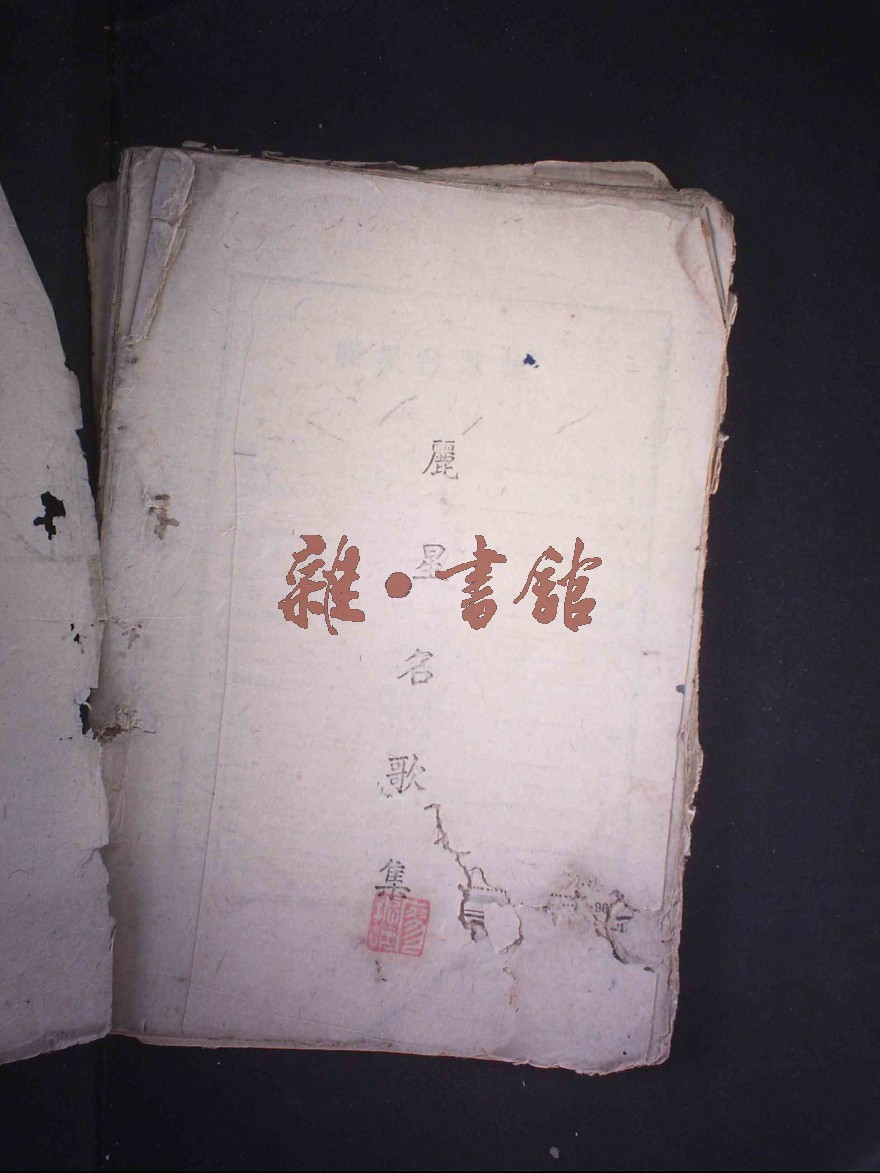 麗星名歌集
雜·書館